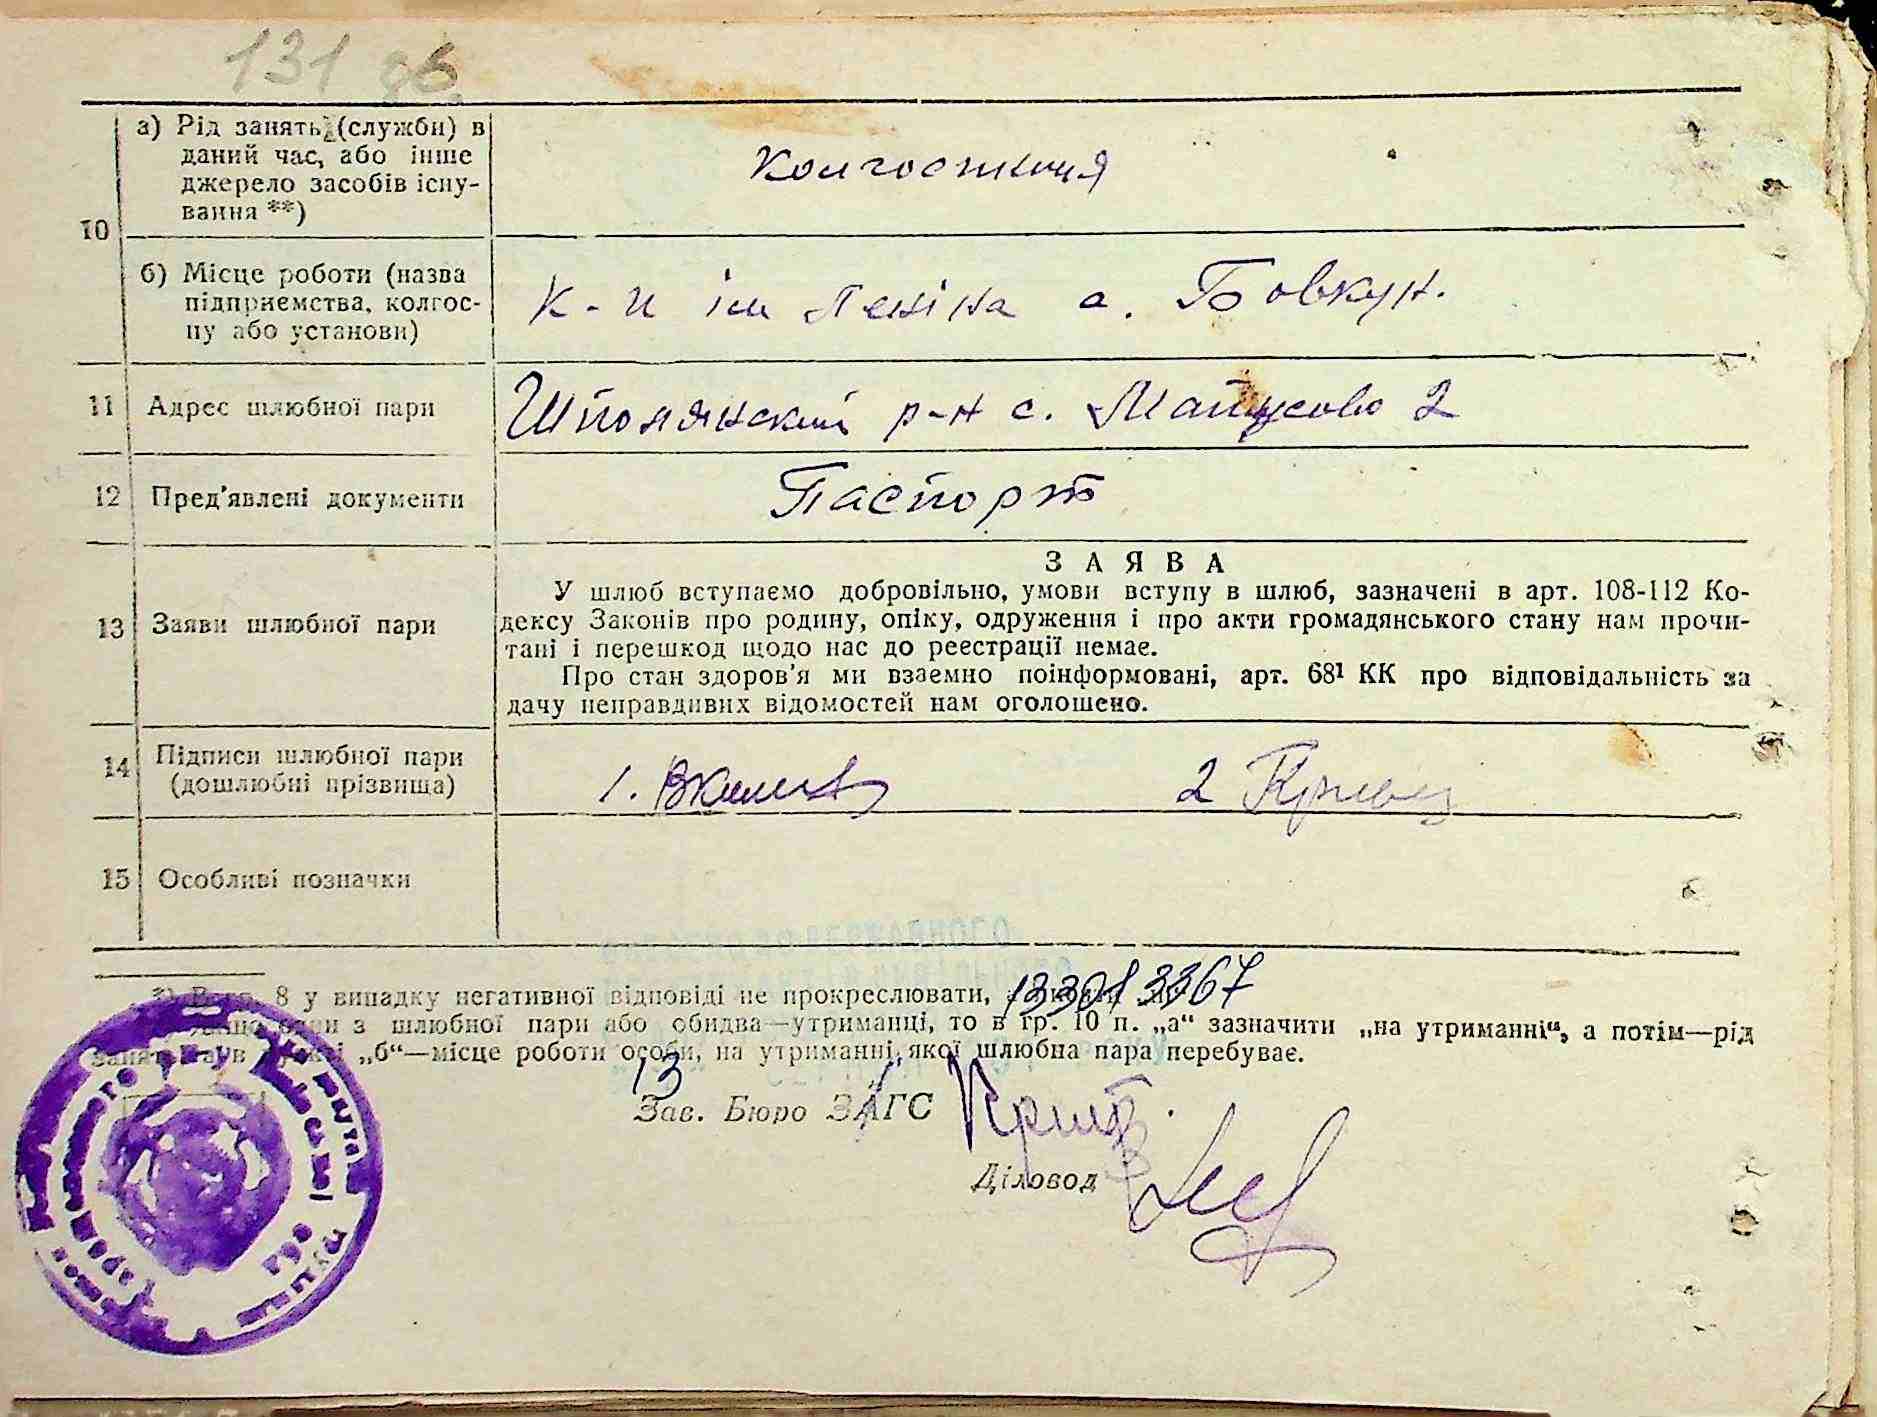 131 зб.
10
а) Рід занять (служби) в
даний час, або інше
джерело засобів існу-
вання **)
Колгоспниця
б) Місце роботи (назва
підприємства, колгос-
пу або установи)
К-п ім Леніна с. Бовкун.
11 Адрес шлюбної пари
Шполянский р-н с. Мацусово 2
12 Пред'явлені документи
Паспорт
13 Заяви шлюбної пари
ЗАЯВА
У шлюб вступаємо добровільно, умови вступу в шлюб, зазначені в арт. 108-112 Ко-
дексу Законів про родину, опіку, одруження і про акти громадянського стану нам прочи-
тані і перешкод щодо нас до реєстрації немає.
Про стан здоров'я ми взаємно поінформовані, арт. 68¹ КК про відповідальність за
дачу неправдивих відомостей нам оголошено.
14 Підписи шлюбної пари
(дошлюбні прізвища)
1.
2
15 Особливі позначки
8 у випадку негативної відповіді не прокреслювати,
з шлюбної пари або обидва—утриманці, то в гр. 10 п. „а“ зазначити „на утриманні“, а потім—рід
„б“—місце роботи особи, на утриманні якої шлюбна пара перебуває.
13
Зав. Бюро ЗАГС
Діловод